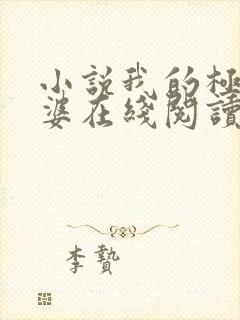 小説我的極
婆在綫閱讀
李贄